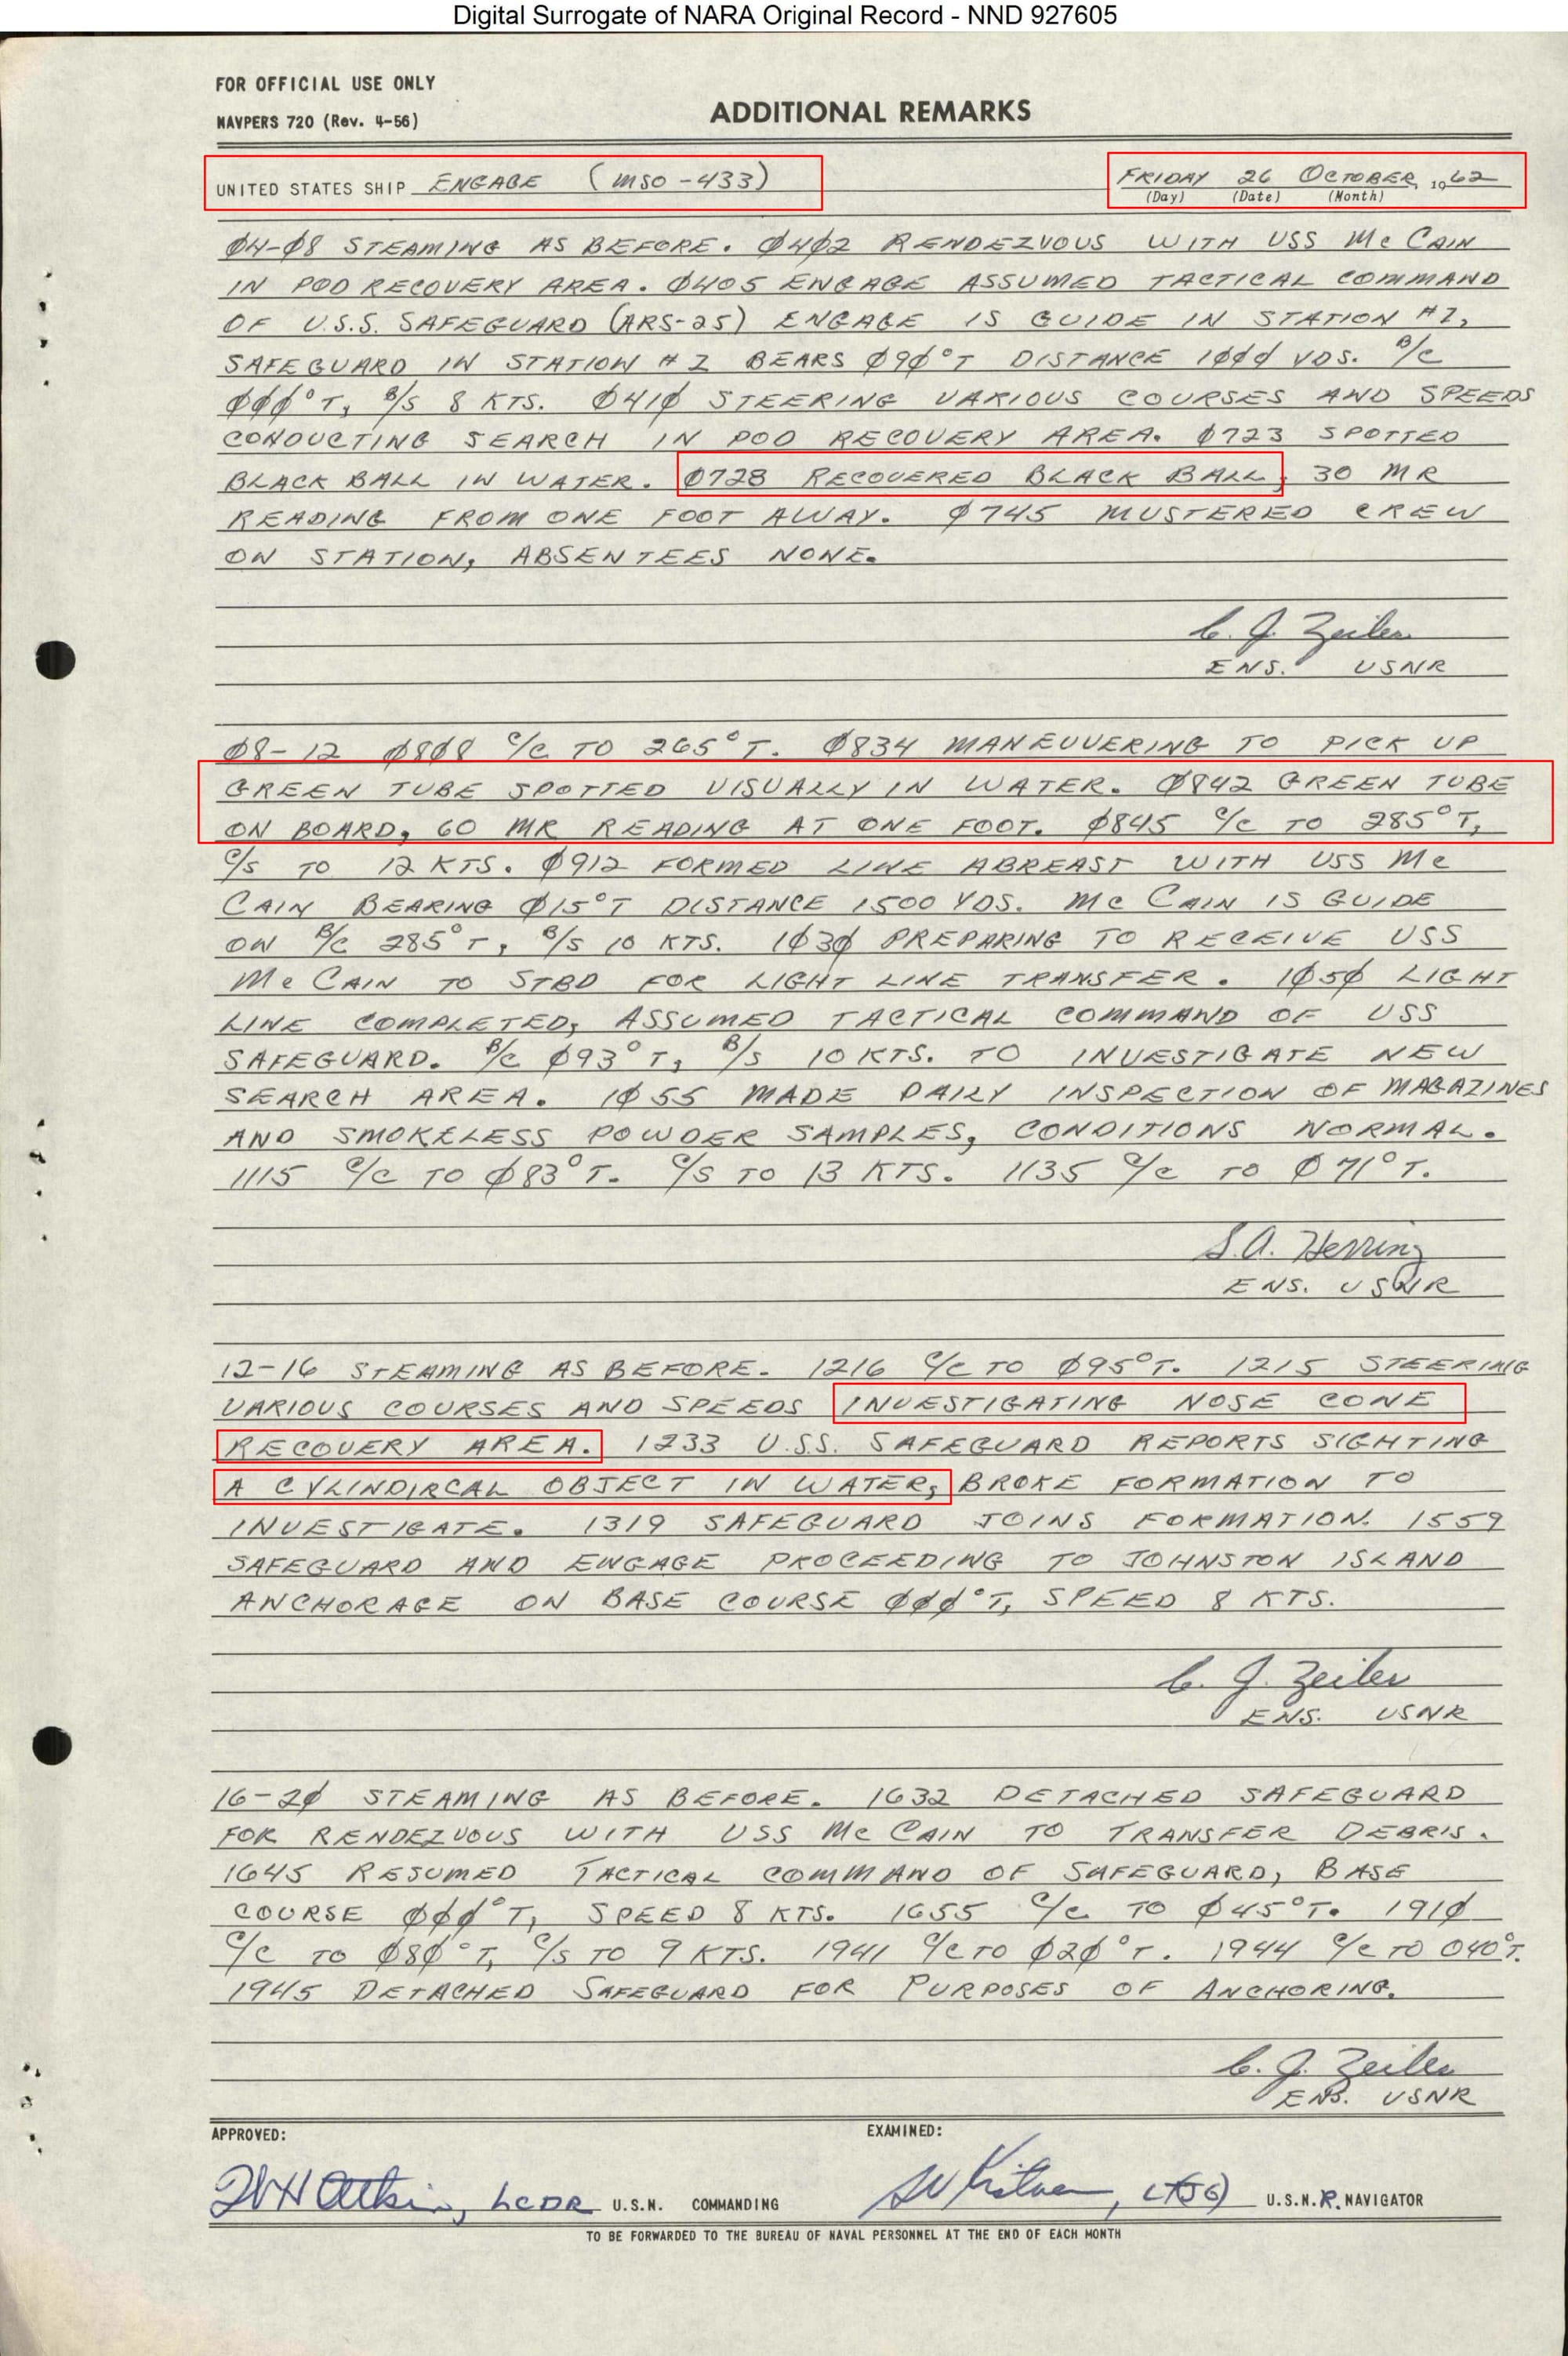 Digital Surrogate of NARA Original Record - NND 927605
FOR OFFICIAL USE ONLY
NAVPERS 720 (Rev. 4-56)
ADDITIONAL REMARKS
UNITED STATES SHIP ENGAGE (MSO-433)
FRIDAY 26 OCTOBER, 1962
(Day) (Date) (Month)
Ø4-Ø8 STEAMING AS BEFORE. Ø4Ø2 RENDEZVOUS WITH USS Mc CAIN
IN POD RECOVERY AREA. Ø405 ENGAGE ASSUMED TACTICAL COMMAND
OF U.S.S. SAFEGUARD (ARS-25) ENGAGE IS GUIDE IN STATION #1,
SAFEGUARD IN STATION # 2 BEARS Ø9Ø°T DISTANCE 1ØØØ YDS. B/C
ØØØ°T, B/S 8 KTS. Ø41Ø STEERING VARIOUS COURSES AND SPEEDS
CONDUCTING SEARCH IN POD RECOVERY AREA. Ø723 SPOTTED
BLACK BALL IN WATER. Ø728 RECOVERED BLACK BALL, 30 MR
READING FROM ONE FOOT AWAY. Ø745 MUSTERED CREW
ON STATION, ABSENTEES NONE.
C. J. Zeiler
ENS. USNR
Ø8-12 Ø8Ø8 C/C TO 265°T. Ø834 MANEUVERING TO PICK UP
GREEN TUBE SPOTTED VISUALLY IN WATER. Ø842 GREEN TUBE
ON BOARD, 60 MR READING AT ONE FOOT. Ø845 C/C TO 285°T,
C/S TO 12 KTS. Ø912 FORMED LINE ABREAST WITH USS Mc
CAIN BEARING Ø15°T DISTANCE 1500 YDS. Mc CAIN IS GUIDE
ON B/C 285°T, B/S 10 KTS. 1Ø3Ø PREPARING TO RECEIVE USS
Mc CAIN TO STBD FOR LIGHT LINE TRANSFER. 1Ø5Ø LIGHT
LINE COMPLETED, ASSUMED TACTICAL COMMAND OF USS
SAFEGUARD. B/C Ø93°T, B/S 10 KTS. TO INVESTIGATE NEW
SEARCH AREA. 1Ø55 MADE DAILY INSPECTION OF MAGAZINES
AND SMOKELESS POWDER SAMPLES, CONDITIONS NORMAL.
1115 C/C TO Ø83°T. C/S TO 13 KTS. 1135 C/C TO Ø71°T.
S.A. Herring
ENS. USNR
12-16 STEAMING AS BEFORE. 1216 C/C TO Ø95°T. 1215 STEERING
VARIOUS COURSES AND SPEEDS INVESTIGATING NOSE CONE
RECOVERY AREA. 1233 U.S.S. SAFEGUARD REPORTS SIGHTING
A CYLINDIRCAL OBJECT IN WATER, BROKE FORMATION TO
INVESTIGATE. 1319 SAFEGUARD JOINS FORMATION. 1559
SAFEGUARD AND ENGAGE PROCEEDING TO JOHNSTON ISLAND
ANCHORAGE ON BASE COURSE ØØØ°T, SPEED 8 KTS.
C. J. Zeiler
ENS. USNR
16-2Ø STEAMING AS BEFORE. 1632 DETACHED SAFEGUARD
FOR RENDEZVOUS WITH USS Mc CAIN TO TRANSFER DEBRIS.
1645 RESUMED TACTICAL COMMAND OF SAFEGUARD, BASE
COURSE ØØØ°T, SPEED 8 KTS. 1655 C/C TO Ø45°T. 191Ø
C/C TO Ø8Ø°T, C/S TO 9 KTS. 1941 C/C TO Ø2Ø°T. 1944 C/C TO 040°T.
1945 DETACHED SAFEGUARD FOR PURPOSES OF ANCHORING.
C. J. Zeiler
ENS. USNR
APPROVED: EXAMINED:
LCDR U.S.N. COMMANDING LT(JG) U.S.N.R. NAVIGATOR
TO BE FORWARDED TO THE BUREAU OF NAVAL PERSONNEL AT THE END OF EACH MONTH